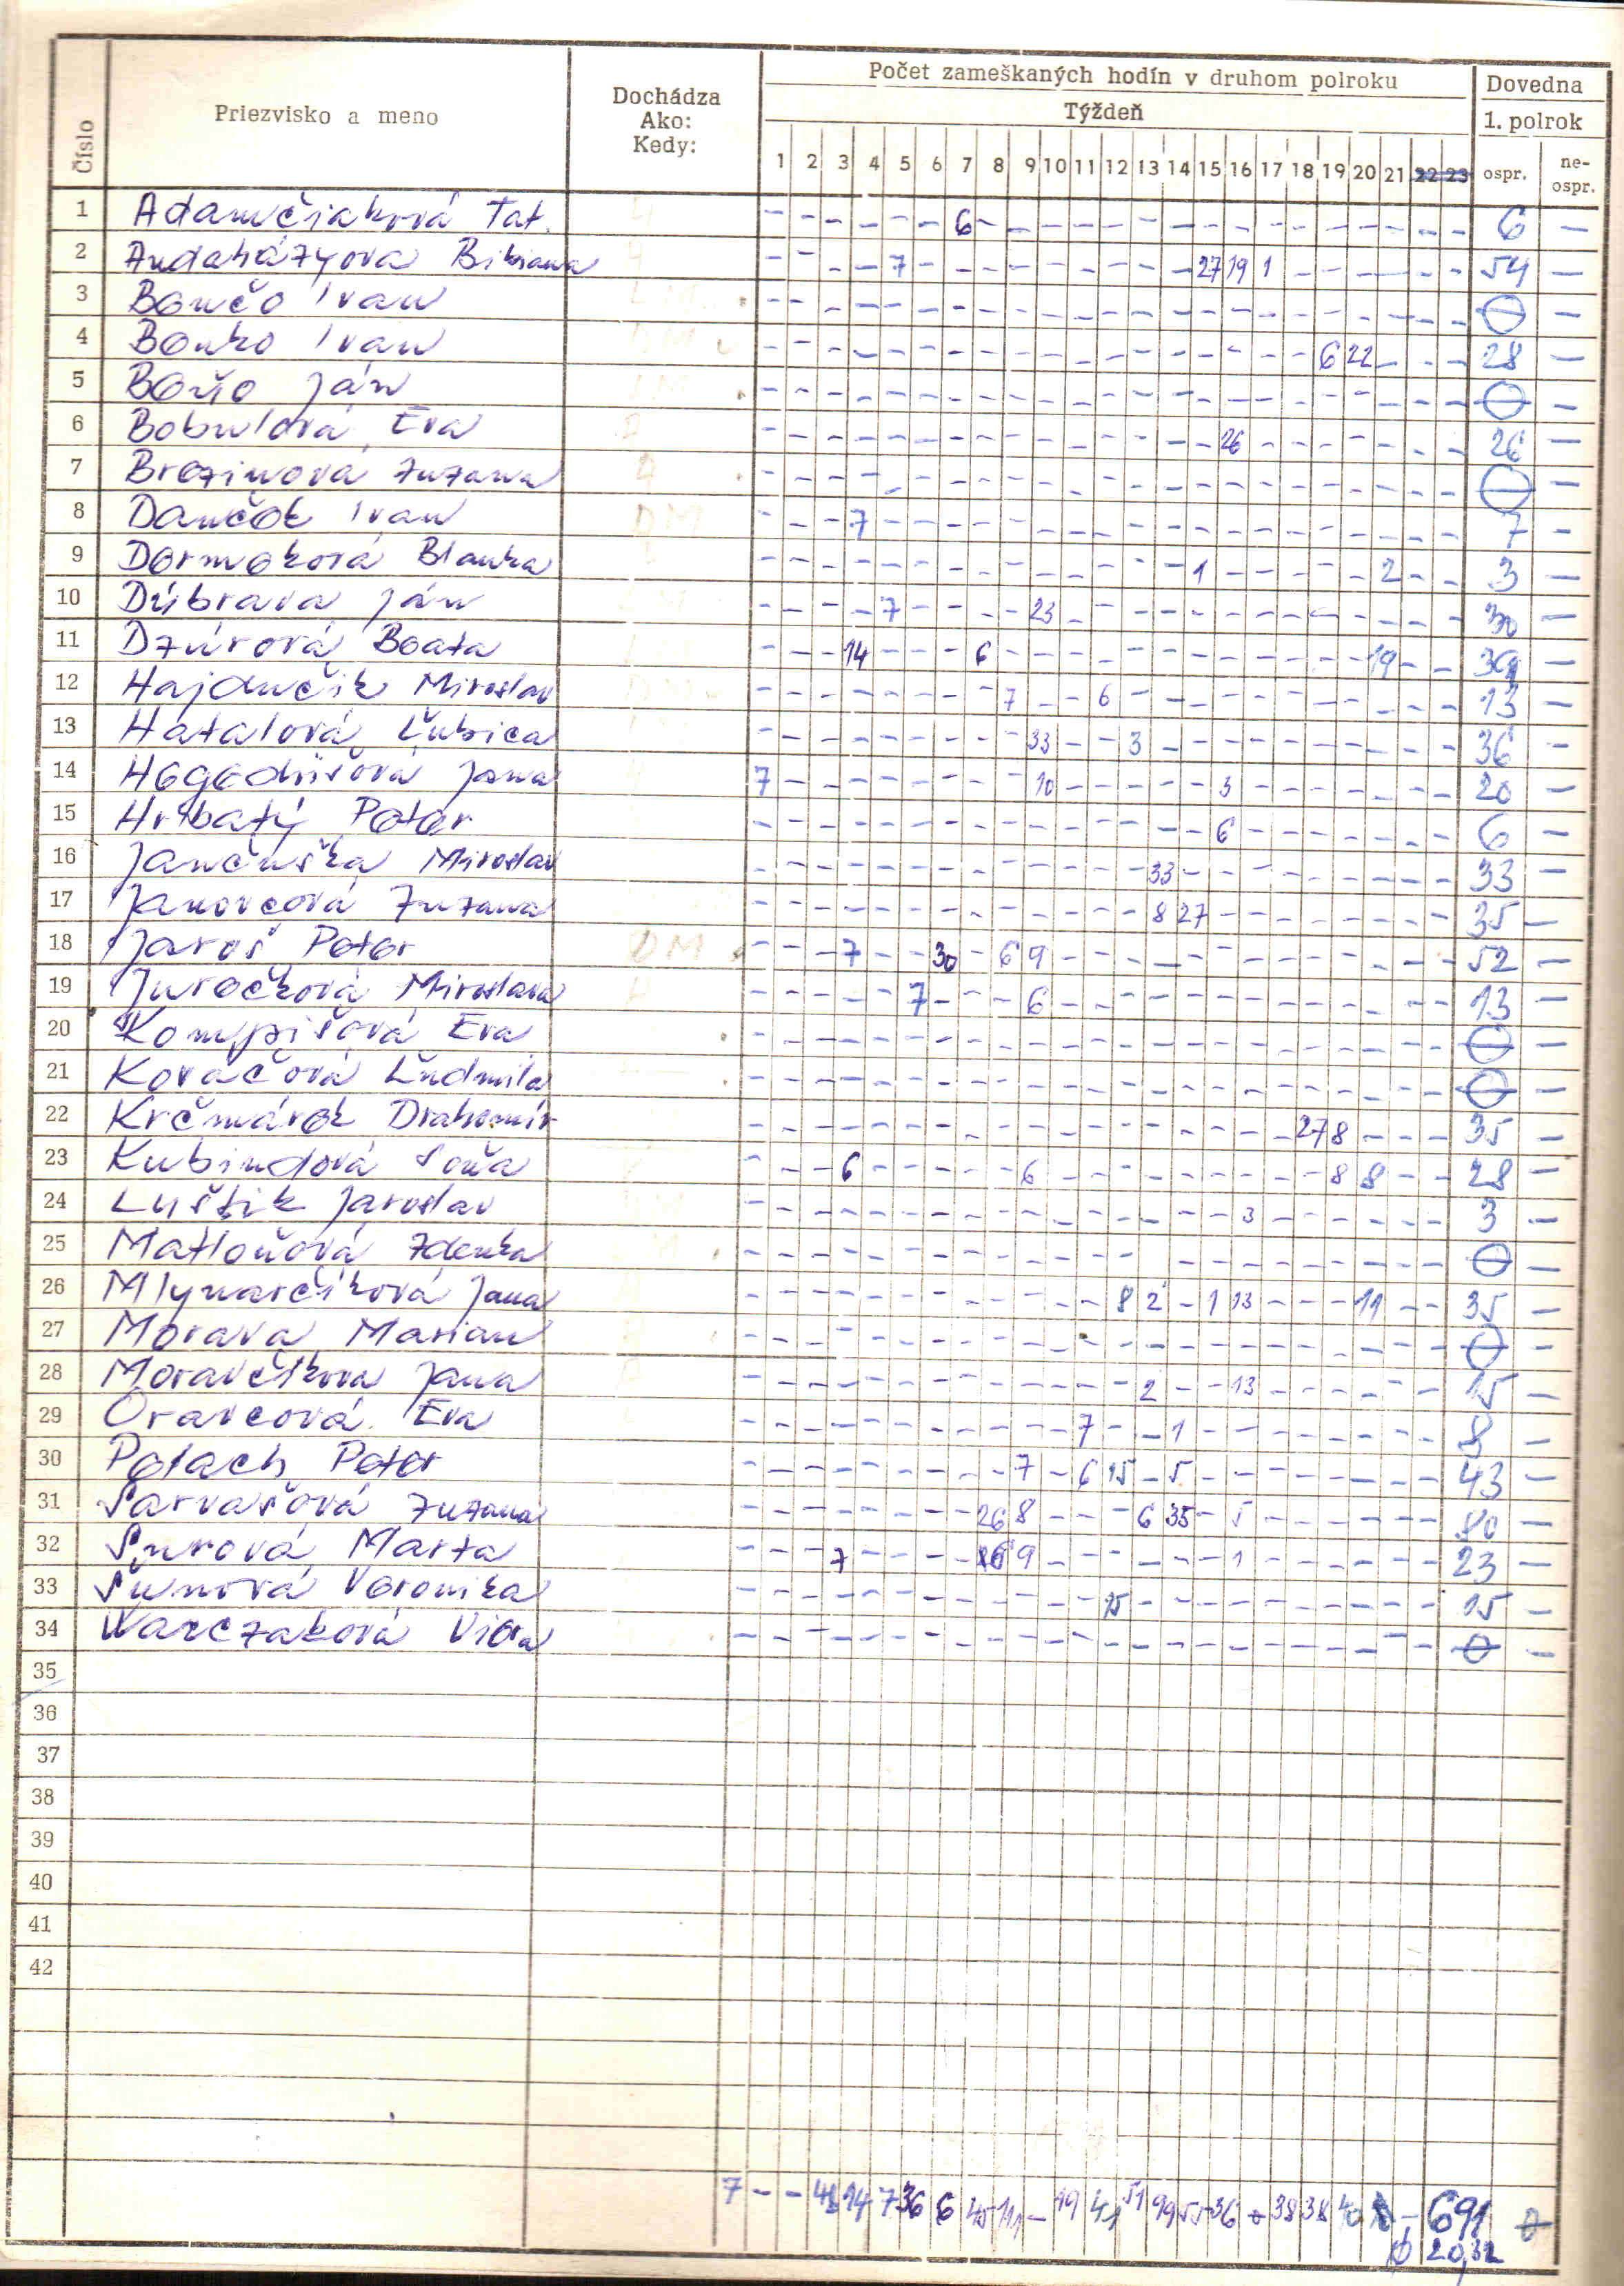 Číslo Priezvisko a meno Dochádza Ako: Kedy: Počet zameškaných hodín v druhom polroku Dovedna
Týždeň 1. polrok
1 2 3 4 5 6 7 8 9 10 11 12 13 14 15 16 17 18 19 20 21 22 23 ospr. ne-ospr.
1 Adamčiaková Tat. - - - - - - 6 - - - - - - - - - - - - - - - 6 -
2 Andaházyova Bibiana - - - - 7 - - - - - - - - - 27 19 1 - - - - - 54 -
3 Bančo Ivan - - - - - - - - - - - - - - - - - - - - - - 0 -
4 Banko Ivan - - - - - - - - - - - - - - - - - - 6 22 - - - 28 -
5 Baňo Ján - - - - - - - - - - - - - - - - - - - - - - 0 -
6 Bobulová Eva - - - - - - - - - - - - - - - 26 - - - - - - 26 -
7 Brezinová Zuzana - - - - - - - - - - - - - - - - - - - - - - 0 -
8 Dančák Ivan DM - - - 7 - - - - - - - - - - - - - - - - - - 7 -
9 Blanka - - - - - - - - - - - - - - 1 - - - - - 2 - - 3 -
10 Dúbrava Ján - - - - 7 - - - - 23 - - - - - - - - - - - - 30 -
11 Dzúrová Beata - - - 14 - - - 6 - - - - - - - - - - - - 19 - - 39 -
12 Hajdučik Miroslav - - - - - - - - 7 - - 6 - - - - - - - - - - 13 -
13 Hatalová Ľubica - - - - - - - - - 33 - - 3 - - - - - - - - - - 36 -
14 Hegedüšová Jana 7 - - - - - - - - 10 - - - - - 3 - - - - - - - 20 -
15 Hrbatý Peter - - - - - - - - - - - - - - - 6 - - - - - - - 6 -
16 Jančuška Miroslav - - - - - - - - - - - - - 33 - - - - - - - - - 33 -
17 Janovcová Zuzana - - - - - - - - - - - - - 8 27 - - - - - - - - 35 -
18 Jaroš Peter DM - - - 7 - - 30 - 6 9 - - - - - - - - - - - - - 52 -
19 Juročková Miroslava - - - - - 7 - - - 6 - - - - - - - - - - - - - 13 -
20 Kompišová Eva - - - - - - - - - - - - - - - - - - - - - - 0 -
21 Kováčová Ľudmila - - - - - - - - - - - - - - - - - - - - - - 0 -
22 Krčmárek Drahomír - - - - - - - - - - - - - - - - - - 27 8 - - - 35 -
23 Kubindová Soňa - - - 6 - - - - - 6 - - - - - - - - - 8 8 - - 28 -
24 Luštik Jaroslav - - - - - - - - - - - - - - - - 3 - - - - - - 3 -
25 Matloňová Zdenka - - - - - - - - - - - - - - - - - - - - - - 0 -
26 Mlynarčíková Jana - - - - - - - - - - - - 8 2 - 1 13 - - - 11 - - 35 -
27 Morava Marian - - - - - - - - - - - - - - - - - - - - - - 0 -
28 Moravčíkova Jana - - - - - - - - - - - - - 2 - - 13 - - - - - - 15 -
29 Oravcová Eva - - - - - - - - - - - 7 - - 1 - - - - - - - - 8 -
30 Peter - - - - - - - - - 7 - 6 15 - 5 - - - - - - - - 43 -
31 Sarvašová Zuzana - - - - - - - - 26 8 - - - 6 35 - 5 - - - - - - 80 -
32 Marta - - - 7 - - - - 6 9 - - - - - - 1 - - - - - - 23 -
33 Šumová Veronika - - - - - - - - - - - - 15 - - - - - - - - - - 15 -
34 Warczaková Viera - - - - - - - - - - - - - - - - - - - - - - 0 -
35
36
37
38
39
40
41
42
7 - - 14 7 36 6 45 111 - 19 41 51 99 55 36 38 38 40 - 691 0
Ø 20,32